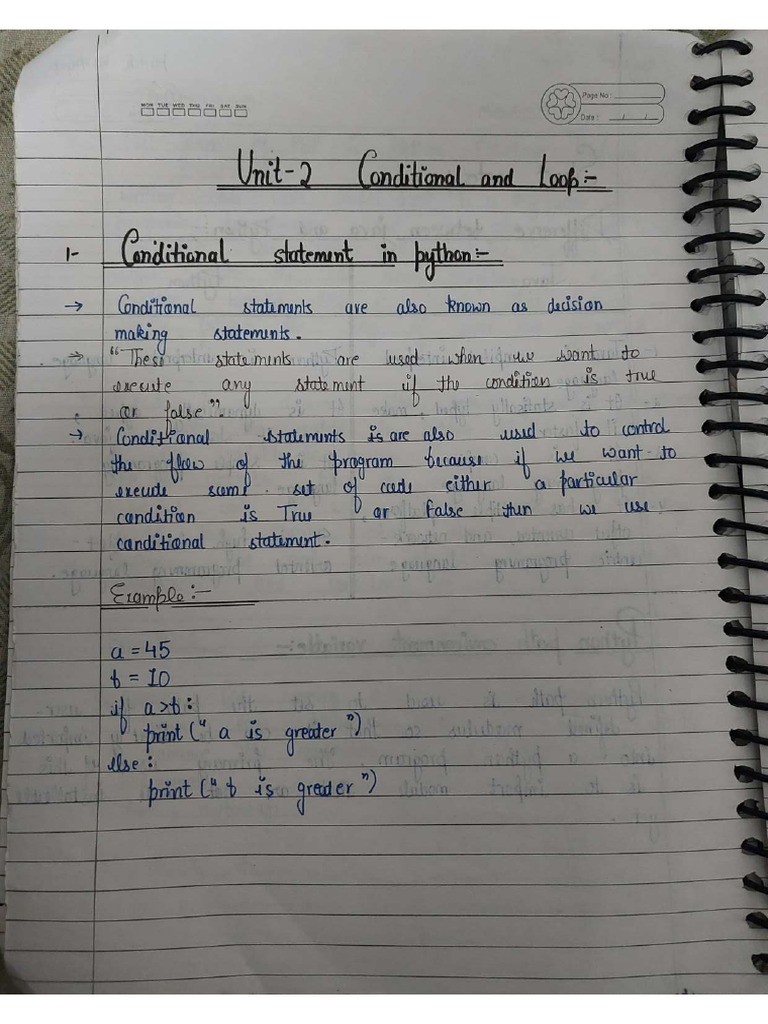 MON TUE WED THU FRI SAT SUN
Page No :
Date :
Unit-2 Conditional and Loop:-
1- Conditional statement in python:-
→ Conditional statements are also known as decision
making statements.
→ "These statements are used when we want to
execute any statement if the condition is true
or false"
→ Conditional statements is are also used to control
the flow of the program because if we want to
execude some set of code either a particular
condition is True or false then we use
conditional statement.
Example:-
a = 45
b = 10
if a>b:
print (" a is greater ")
else:
print (" b is greader ")